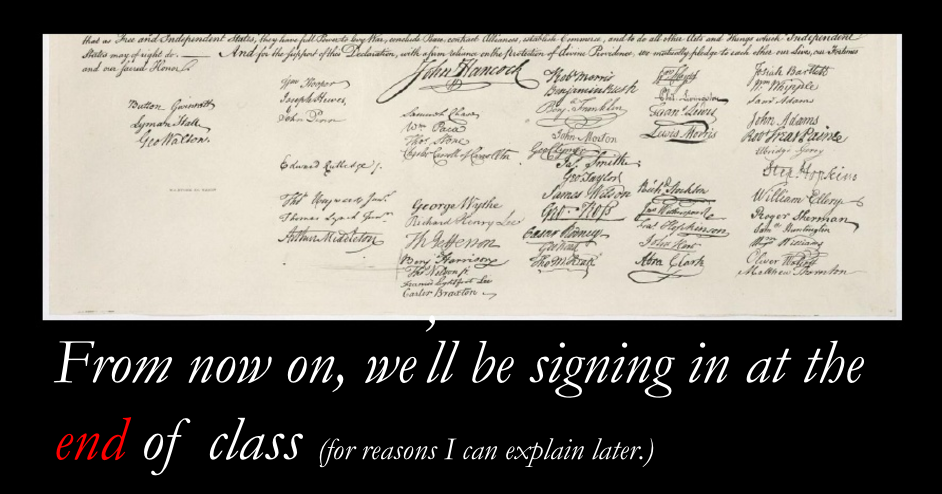 that as Free and Independent States, they have full Power to levy War, conclude Peace, contract Alliances, establish Commerce, and to do all other Acts and Things which Independent
States may of right do. — And for the support of this Declaration, with a firm reliance on the Protection of divine Providence, we mutually pledge to each other our Lives, our Fortunes
and our sacred Honor.
John Hancock
Button Gwinnett
Lyman Hall
Geo Walton.
Wm Hooper
Joseph Hewes,
John Penn
Edward Rutledge
Thos Heyward Junr.
Thomas Lynch Junr.
Arthur Middleton
Samuel Chase
Wm Paca
Thos Stone
Charles Carroll of Carrollton
George Wythe
Richard Henry Lee
Th Jefferson
Benj Harrison
Thos Nelson jr.
Francis Lightfoot Lee
Carter Braxton
Robt Morris
Benjamin Rush
Benj. Franklin
John Morton
Geo Clymer
Jas. Smith
Geo. Taylor
James Wilson
Geo. Ross
Caesar Rodney
Geo Read
Tho M:Kean
Wm Floyd
Phil. Livingston
Frans. Lewis
Lewis Morris
Richd. Stockton
Jno Witherspoon
Fras. Hopkinson
John Hart
Abra Clark
Josiah Bartlett
Wm Whipple
Saml Adams
John Adams
Robt Treat Paine
Elbridge Gerry
Step. Hopkins
William Ellery
Roger Sherman
Saml Huntington
Wm Williams
Oliver Wolcott
Matthew Thornton
From now on, we’ll be signing in at the
end of class (for reasons I can explain later.)